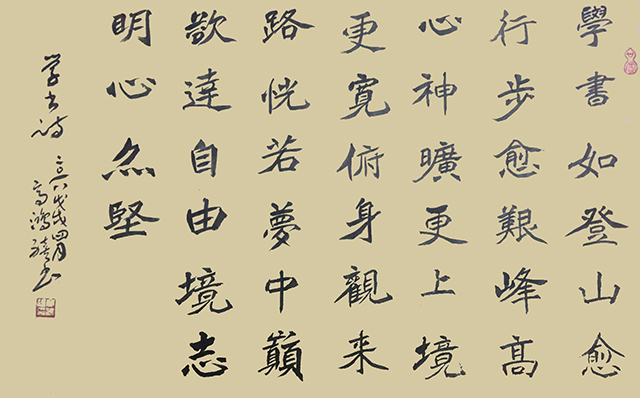 學書如登山愈
行步愈艱峰高
心神曠更上境
更寬俯身觀来
路恍若夢中巔
欲達自由境志
明心亦堅
学书诗
二〇一八戊戌四月
高鴻书